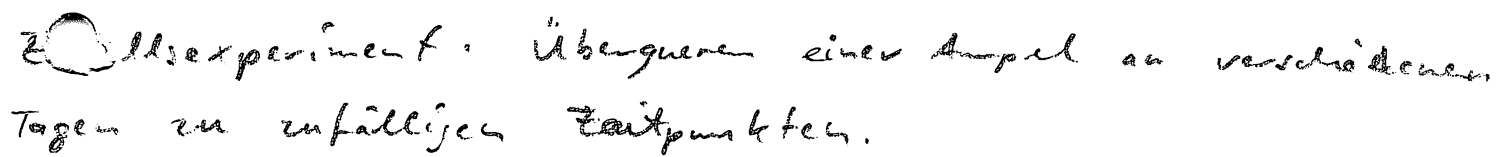 Zufallsexperiment. Überqueren einer Ampel an verschiedenen
Tagen zu zufälligen Zeitpunkten.